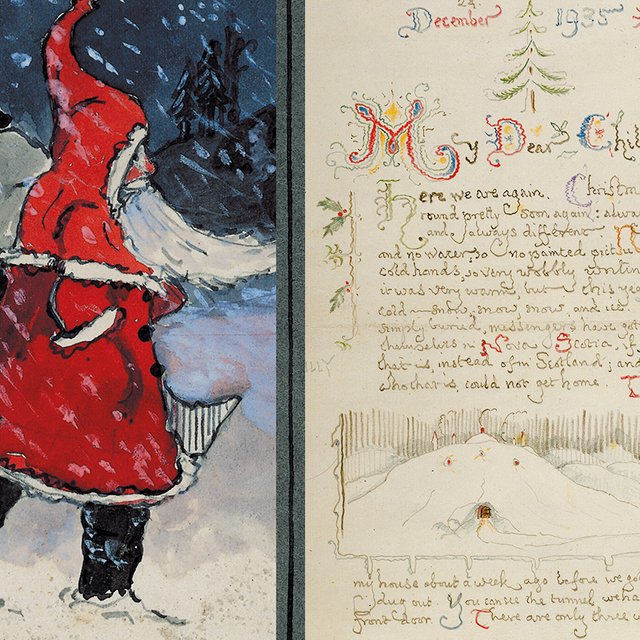 24
December 1935
My Dear Chil
Here we are again. Christm
round pretty soon again: alwa
and always different N
and no water, so no painted pictu
cold hands, so very wobbly
it was very warm, but this yea
cold — snow, snow, snow and ice.
simply buried, messengers have got
themselves in Nova Scotia, if
that is, instead of in Scotland; and
that is, could not get home. T
my house about a week ago before we got
dug out. You can see the tunnel we ha
front door. There are only three